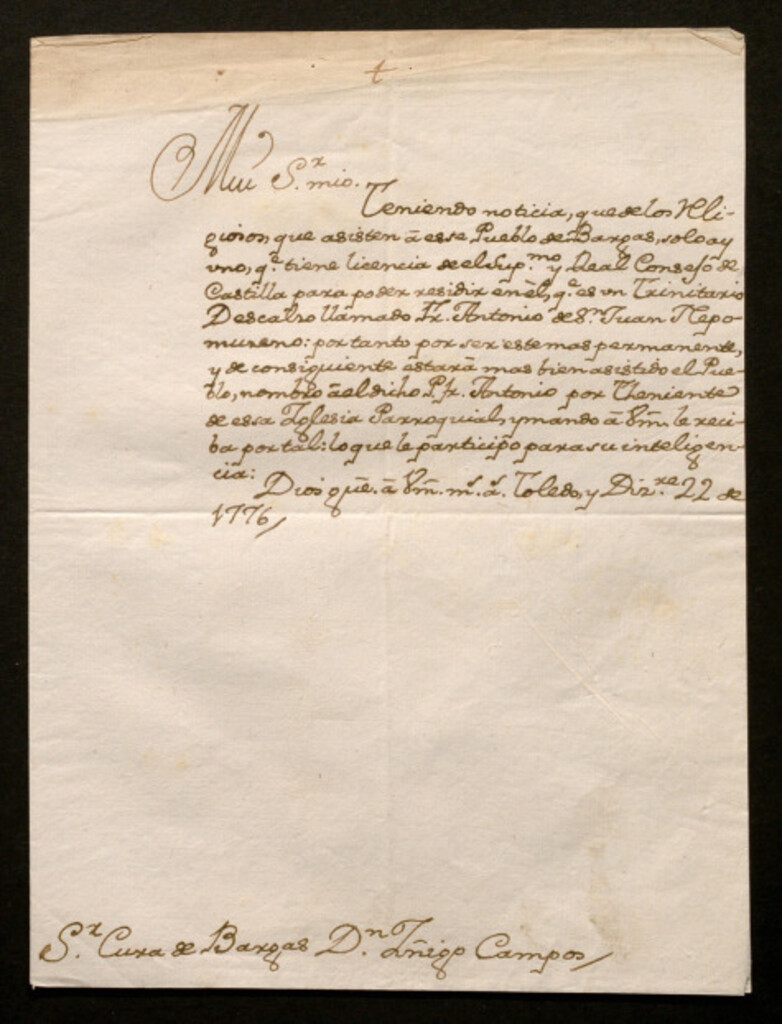 †
Mui S.r mio.
Teniendo noticia, que de los Reli-
giosos, que asisten â esse Pueblo de Bargas, solo ay
vno, q.e tiene licencia de el Sup.mo y Real Consejo de
Castilla para poder residir en êl, q.e es vn Trinitario
Descalzo llamado Fr. Antonio de S.n Juan Nepo-
muzeno: por tanto por ser este mas permanente,
y de consiguiente estarâ mas bien asistido el Pue-
blo, nombro â el dicho P. Fr. Antonio por Theniente
de essa Iglesia Parroquial, y mando â Vm. le reci-
ba por tal: lo que le participo para su inteligen-
cia:
Dios gũe. â Vm. m.s a.s Toledo, y Diz.re 22 de
1776,
S.r Cura de Bargas D.n Iñigo Campos,